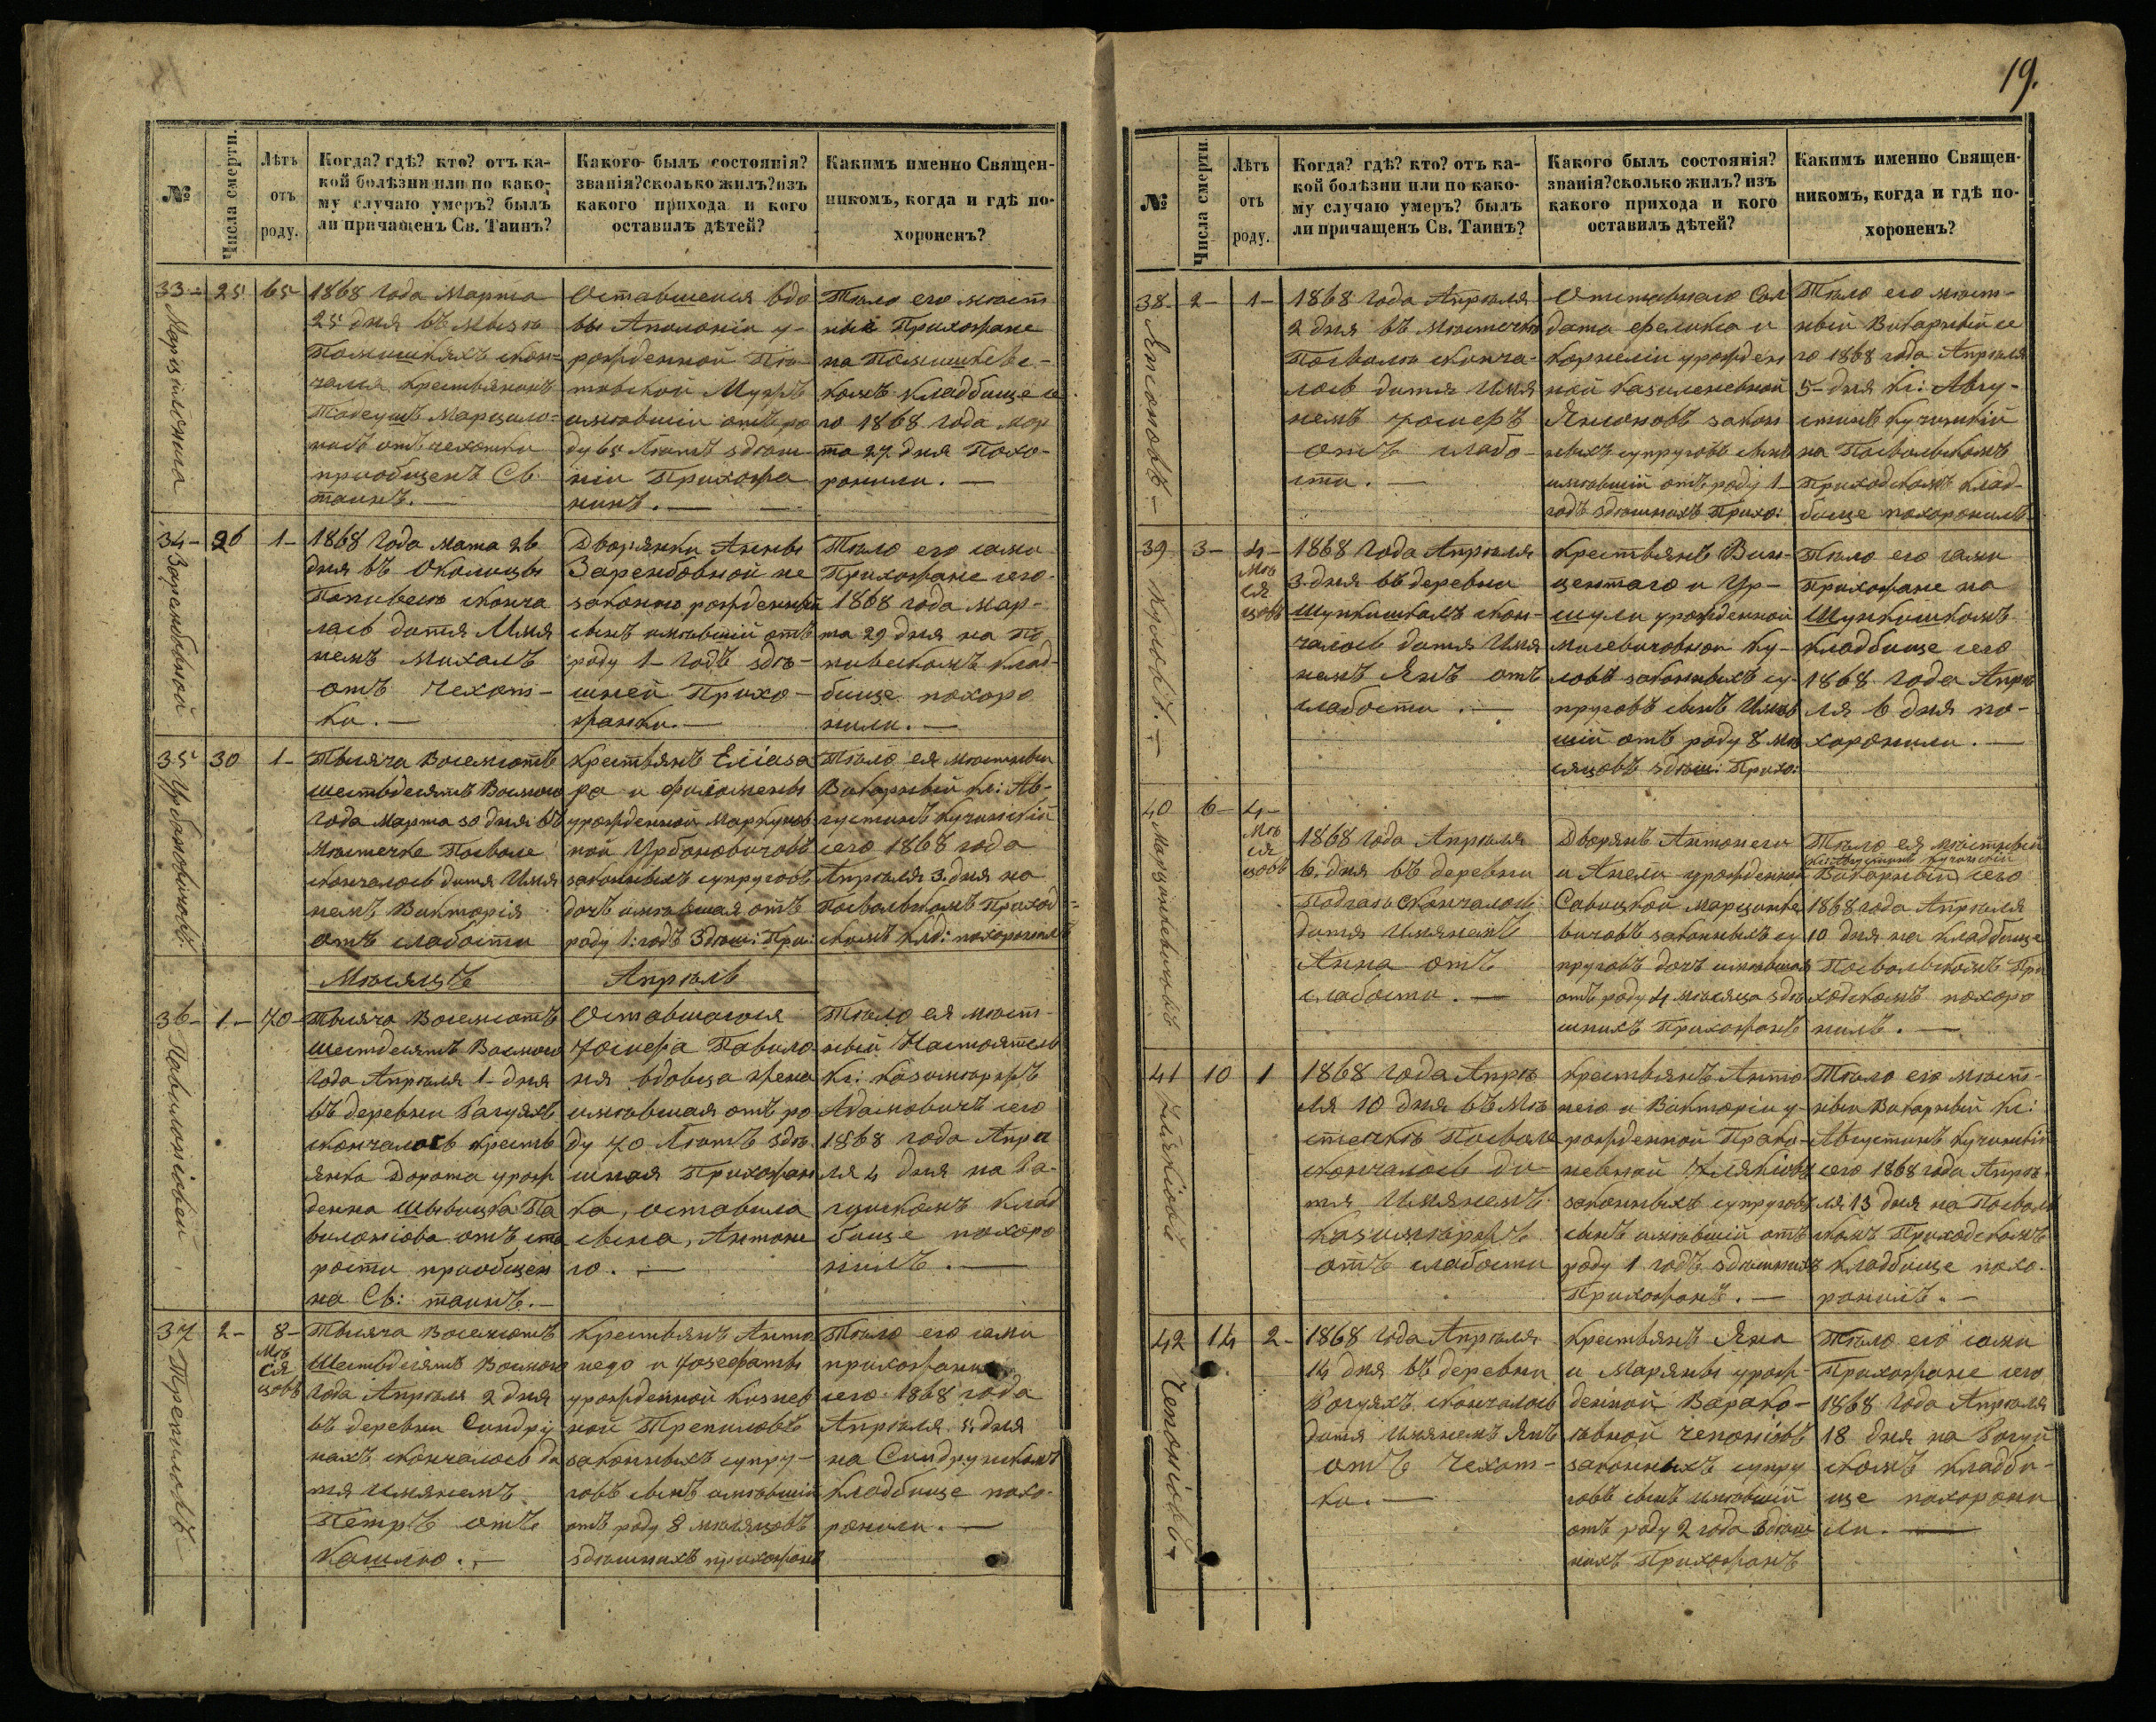 19.
№
Числа смерти.
Лѣтъ
отъ
роду.
Когда? гдѣ? кто? отъ ка-
кой болѣзни или по како-
му случаю умеръ? былъ
ли причащенъ Св. Таинъ?
Какого былъ состоянія?
званія? сколько жилъ? изъ
какого прихода и кого
оставилъ дѣтей?
Какимъ именно Священ-
никомъ, когда и гдѣ по-
хороненъ?
33-
25
65
1868 года Марта
25 дня въ
скон-
чался крестьянинъ
Тадеушъ Марцило-
нисъ отъ чехотки
пріобщенъ Св.
таинъ.—
вдо
вы Аполоніи у-
рожденной
Мужъ
имѣвшій отъ ро
ду 65 лѣтъ здѣш-
ній Прихожа
нинъ.—
Тѣло его мѣст
ные Прихожане
на
комъ кладбище се
го 1868 года Мар
та 27 дня Похо-
ронили.—
34-
26
1-
Зарембовной
1868 года Марта 26
дня въ Околицы
сконча
лось дитя Имя
немъ Михалъ
отъ чехот-
ки.—
Дворянки Анны
Зарембовной не
законно рожденный
сынъ имѣвшій отъ
роду 1- годъ здѣ-
шней Прихо-
жанки.—
Тѣло его сами
Прихожане сего
1868 года Мар-
та 29 дня на По
пивескомъ клад-
бище похоро
нили.—
35
30
1-
Урбановичовъ.
Тысяча Восемсотъ
шестьдесятъ Восмого
года Марта 30 дня въ
Мѣстечке Посволе
скончалось дитя Имя
немъ Викторія
отъ слабости
Крестьянъ Еліаза
ра и Филомены
урожденной
ной Урбановичовъ
законныхъ супруговъ
дочъ имѣвшая отъ
роду 1: годъ Здѣш: При:
Тѣло ея мѣстный
Викарный Кс: Ав-
густинъ Кучинскій
сего 1868 года
Апрѣля 3. дня на
Посвольскомъ Приход-
скомъ Клд: похоронилъ
Мѣсяцъ
Апрѣль
36-
1.-
70-
Тысяча Восемсотъ
шестдесятъ Восмого
года Апрѣля 1- дня
въ деревни Рагуяхъ
скончалась кресть
янка Дорота урож
денна
отъ ста
рости пріобщен
на Св: таинъ.—
Оставшагося
Іосифа Павило-
ня вдовца жена
имѣвшая отъ ро
ду 70 Лѣтъ здѣ
шная Прихожан
ка, оставила
сына, Антоне
го.—
Тѣло ея мѣст-
ный Настоятель
Кс: Казимѣржъ
Адамовичъ сего
1868 года Апрѣ
ля 4 дня на Ра-
гуискомъ клад
бище похоро
нилъ.—
37
2-
8-
Мѣ
ся
цовъ
Тысяча Восемсотъ
Шестьдесятъ Восмого
года Апрѣля 2 дня
въ деревни Синдрю
нахъ скончалось ди
тя имянемъ
Петръ отъ
Кашлю.—
Крестьянъ Анто
него и Іозефаты
урожденной
ной
законныхъ супру-
говъ сынъ имѣвшій
отъ роду 8 мѣсяцовъ
здѣшнихъ прихожанъ
Тѣло его сами
прихожани
сего 1868 года
Апрѣля дня
на
кладбище похо-
ронили.—
№
Числа смерти.
Лѣтъ
отъ
роду.
Когда? гдѣ? кто? отъ ка-
кой болѣзни или по како-
му случаю умеръ? былъ
ли причащенъ Св. Таинъ?
Какого былъ состоянія?
званія? сколько жилъ? изъ
какого прихода и кого
оставилъ дѣтей?
Какимъ именно Священ-
никомъ, когда и гдѣ по-
хороненъ?
38-
2-
1-
1868 года Апрѣля
2 дня въ Мѣстечкѣ
Посволѣ сконча-
лось дитя Имя
немъ Іосифъ
отъ слабо-
сти.—
Отставнаго Сол
дата Феликса и
Корнеліи урожден
ной
закон
ныхъ супруговъ сынъ
имѣвшій отъ роду 1-
годъ здѣшнихъ Прихо:
Тѣло его мѣст-
ный Викарный се
го 1868 года Апрѣля
5- дня Кс: Авгу-
стинъ Кучинскій
на Посвольскомъ
Приходскомъ Клад-
бище похоронилъ
39
3-
Мѣ
ся
цовъ
1868 года Апрѣля
3 дня въ деревни
скон-
чалось дитя Имя
немъ Янъ отъ
слабости.—
Крестьянъ Вин-
центаго и Ур-
шули урожденной
законныхъ су-
пруговъ сынъ Имѣв
шій отъ роду 8 мѣ
сяцовъ здѣш: Прихо:
Тѣло его сами
Прихожане на
кладбище сего
1868 года Апрѣ
ля 6 дня по-
хоронили.—
40
6-
4-
Мѣ
ся
цовъ
Марцинкевичовъ
1868 года Апрѣля
6. дня въ деревни
скончалось
дитя Имянемъ
Анна отъ
слабости.—
Дворянъ Антонего
и Анели урожденной
Савицкой Марцинке
вичовъ законныхъ су
пруговъ дочъ имѣвшая
отъ роду 4 мѣсяца здѣ
шнихъ Прихожанъ
Тѣло ея мѣстный
Кс: Августинъ Кучинскій
Викарный сего
1868 года Апрѣля
10 дня на кладбище
Посвольскомъ При
ходскомъ похоро
нилъ.—
41
10
1
1868 года Апрѣ
ля 10 дня въ Мѣ
стечкѣ Посволе
скончалось ди-
тя Имянемъ
Казимѣржъ
отъ слабости
Крестьянъ Анто
него и Викторіи у-
рожденной
законныхъ супруговъ
сынъ имѣвшій отъ
роду 1 годъ здѣшнихъ
Прихожанъ.—
Тѣло его мѣст-
ный Викарный Кс:
Августинъ Кучинскій
сего 1868 года Апрѣ-
ля 13 дня на Посволь
скомъ Приходскомъ
Кладбище похо-
ронилъ.—
42
14
2-
1868 года Апрѣля
14 дня въ деревни
Рагуяхъ скончалось
дитя имянемъ Янъ
отъ чехот-
ки.—
Крестьянъ Яна
и Маріяны урож-
денной
законныхъ супру
говъ сынъ имѣвшій
отъ роду 2 года здѣш
нихъ Прихожанъ
Тѣло его сами
Прихожане сего
1868 года Апрѣля
18 дня на Рагуй
скомъ кладби-
ще похорони
ли.—